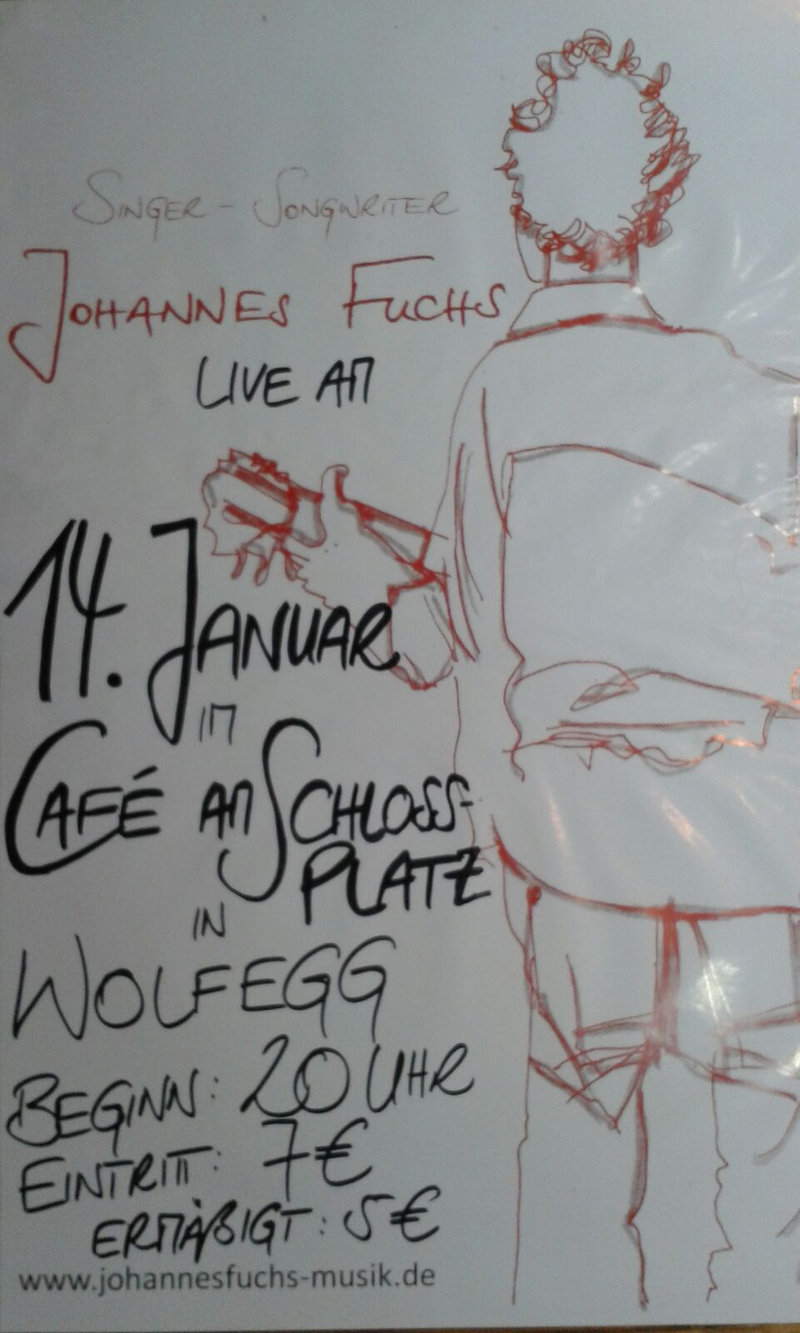 SINGER-SONGWRITER
JOHANNES FUCHS
LIVE AM
14. JANUAR
IM
CAFÉ AM SCHLOSS-
PLATZ
IN
WOLFEGG
BEGINN: 20 UHR
EINTRITT: 7€
ERMÄßIGT: 5€
www.johannesfuchs-musik.de